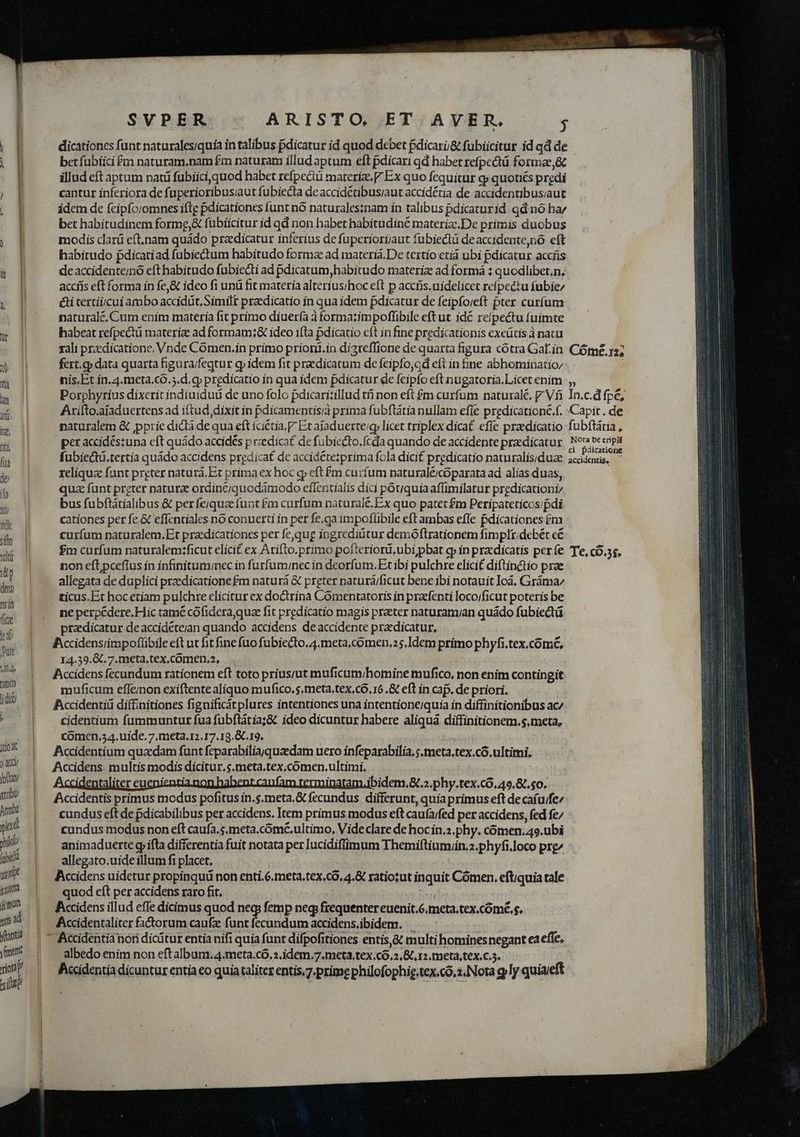 SVPER ARISTO. ET AVER. 5
dicationes sunt naturales:quia in talibus p̄dicatur id quod debet p̄dicari:& subiicitur id qd de
bet subiici s̄m naturam.nam s̄m naturam illud aptum est p̄dicari qd habet respectū formæ,&
illud est aptum natū subiici,quod habet respectū materiæ. Ex quo sequitur ꝙ quotiēs predi
cantur inferiora de superioribus:aut subiecta de accidētibus:aut accidētia de accidentibus:aut
idem de seipso:omnes iste p̄dicationes sunt nō naturales:nam in talibus p̄dicatur id qd nō ha/
bet habitudinem forme,& subiicitur id qd non habet habitudinē materiæ.De primis duobus
modis clarū est,nam quādo prædicatur inferius de superiori:aut subiectū de accidente,nō est
habitudo p̄dicati ad subiectum habitudo formæ ad materiā.De tertio etiā ubi p̄dicatur accñs
de accidente:nō est habitudo subiecti ad p̄dicatum,habitudo materiæ ad formā : quodlibet.n.
accñs est forma in se,& ideo si unū fit materia alterius:hoc est p accñs.uidelicet respectu subie/
cti tertii:cui ambo accidūt.Similr prædicatio in qua idem p̄dicatur de seipso:est p̄ter cursum
naturalē.Cum enim materia sit primo diuersa à forma:impossibile est ut idē respectu suimet
habeat respectū materiæ ad formam:& ideo ista p̄dicatio est in fine predicationis exeūtis à natu
rali prædicatione. Vnde Cōmen.in primo priorū.in digressione de quarta figura cōtra Gal.in Cōmē.12;
fert.ꝙ data quarta figura:seqtur ꝙ idem fit prædicatum de seipso,qd est in fine abhominatio/
nis.Et in.4.meta.cō.5.d.ꝙ predicatio in qua idem p̄dicatur de seipso est nugatoria.Licet enim ,,
Porphyrius dixerit indiuiduū de uno solo p̄dicari:illud tñ non est s̄m cursum naturalē. Vñ In.c.d spē,
Aristo.aīaduertens ad istud,dixit in p̄dicamentis:à prima substātia nullam esse predicationē.s. Capit. de
naturalem & pprie dictā de qua est ītētia. Et aīaduerte:ꝙ licet triplex dicat esse prædicatio substātia,
per accidēs:una est quādo accidēs prædicat de subiecto.scda quando de accidente prædicatur Nota de tripli
subiectū.tertia quādo accidens predicat de accidēte:prima sola dicit predicatio naturalis:duæ ci p̄dicatione
reliquæ sunt preter naturā.Et prima ex hoc ꝙ est s̄m cursum naturalē:cōparata ad alias duas, accidentis.
quæ sunt preter naturæ ordinē:quodāmodo essentialis dici pōt:quia assimilatur predicationi/
bus substātialibus & per se:quæ sunt s̄m cursum naturalē.Ex quo patet s̄m Peripateticos:p̄di
cationes per se & essentiales nō conuerti in per se.qa impossibile est ambas esse p̄dicationes s̄m
cursum naturalem.Et prædicationes per se,que ingrediūtur demōstrationem simplr:debēt eē
s̄m cursum naturalem:sicut elicit ex Aristo.primo posteriorū,ubi,pbat ꝙ in prædicatis per se Te.cō.35.
non est,pcessus in infinitum:nec in sursum:nec in deorsum.Et ibi pulchre elicit distinctio præ
allegata de duplici prædicatione s̄m naturā & preter naturā:sicut bene ibi notauit Ioā. Grāma/
ticus.Et hoc etiam pulchre elicitur ex doctrina Cōmentatoris in præsenti loco:sicut poteris be
ne perpēdere.Hic tamē cōsidera,quæ fit predicatio magis præter naturam:an quādo subiectū
prædicatur de accidēte:an quando accidens de accidente prædicatur.
Accidens:impossibile est ut sit sine suo subiecto.4.meta.cōmen.25.Idem primo physi.tex.cōmē.
14.39.&.7.meta.tex.cōmen.2.
Accidens secundum rationem est toto prius:ut musicum:homine musico, non enim contingit
musicum esse:non existente aliquo musico.5.meta.tex.cō.16.& est in cap̄. de priori.
Accidentiū diffinitiones significāt plures intentiones una intentione:quia in diffinitionibus ac/
cidentium summuntur sua substātia;& ideo dicuntur habere aliquā diffinitionem.5.meta.
cōmen.34.uide.7.meta.12.17.18.&.19.
Accidentium quædam sunt separabilia;quædam uero inseparabilia.5.meta.tex.cō.ultimi.
Accidens multis modis dicitur.5.meta.tex.cōmen.ultimi.
Accidentaliter euenientia non habent causam terminatam.ibidem.&.2.phy.tex.cō.49.&.50.
Accidentis primus modus positus in.5.meta.& secundus differunt, quia primus est de casu:se/
cundus est de p̄dicabilibus per accidens. Item primus modus est causa:sed per accidens, sed se/
cundus modus non est causa.5.meta.cōmē.ultimo. Vide clare de hoc in.2.phy. cōmen.49.ubi
animaduerte ꝙ ista differentia fuit notata per lucidissimum Themistium:in.2.physi.loco pre/
allegato.uide illum si placet.
Accidens uidetur propinquū non enti.6.meta.tex.cō.4.& ratio:ut inquit Cōmen. est:quia tale
quod est per accidens raro fit.
Accidens illud esse dicimus quod neqꝫ semp neqꝫ frequenter euenit.6.meta.tex.cōmē.5.
Accidentaliter factorum causæ sunt secundum accidens.ibidem.
Accidentia non dicūtur entia nisi quia sunt dispositiones entis,& multi homines negant ea esse.
albedo enim non est album.4.meta.cō.2.idem.7.meta.tex.cō.2.&.12.meta.tex.c.3.
Accidentia dicuntur entia eo quia taliter entis.7.prime philosophie.tex.cō.2.Nota ꝙ ly quia:est